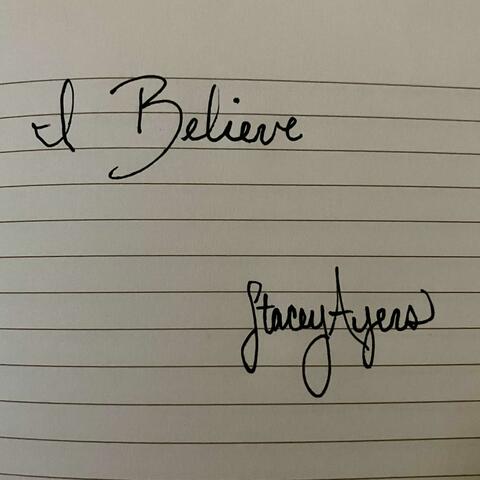 I Believe
Stacey Ayers